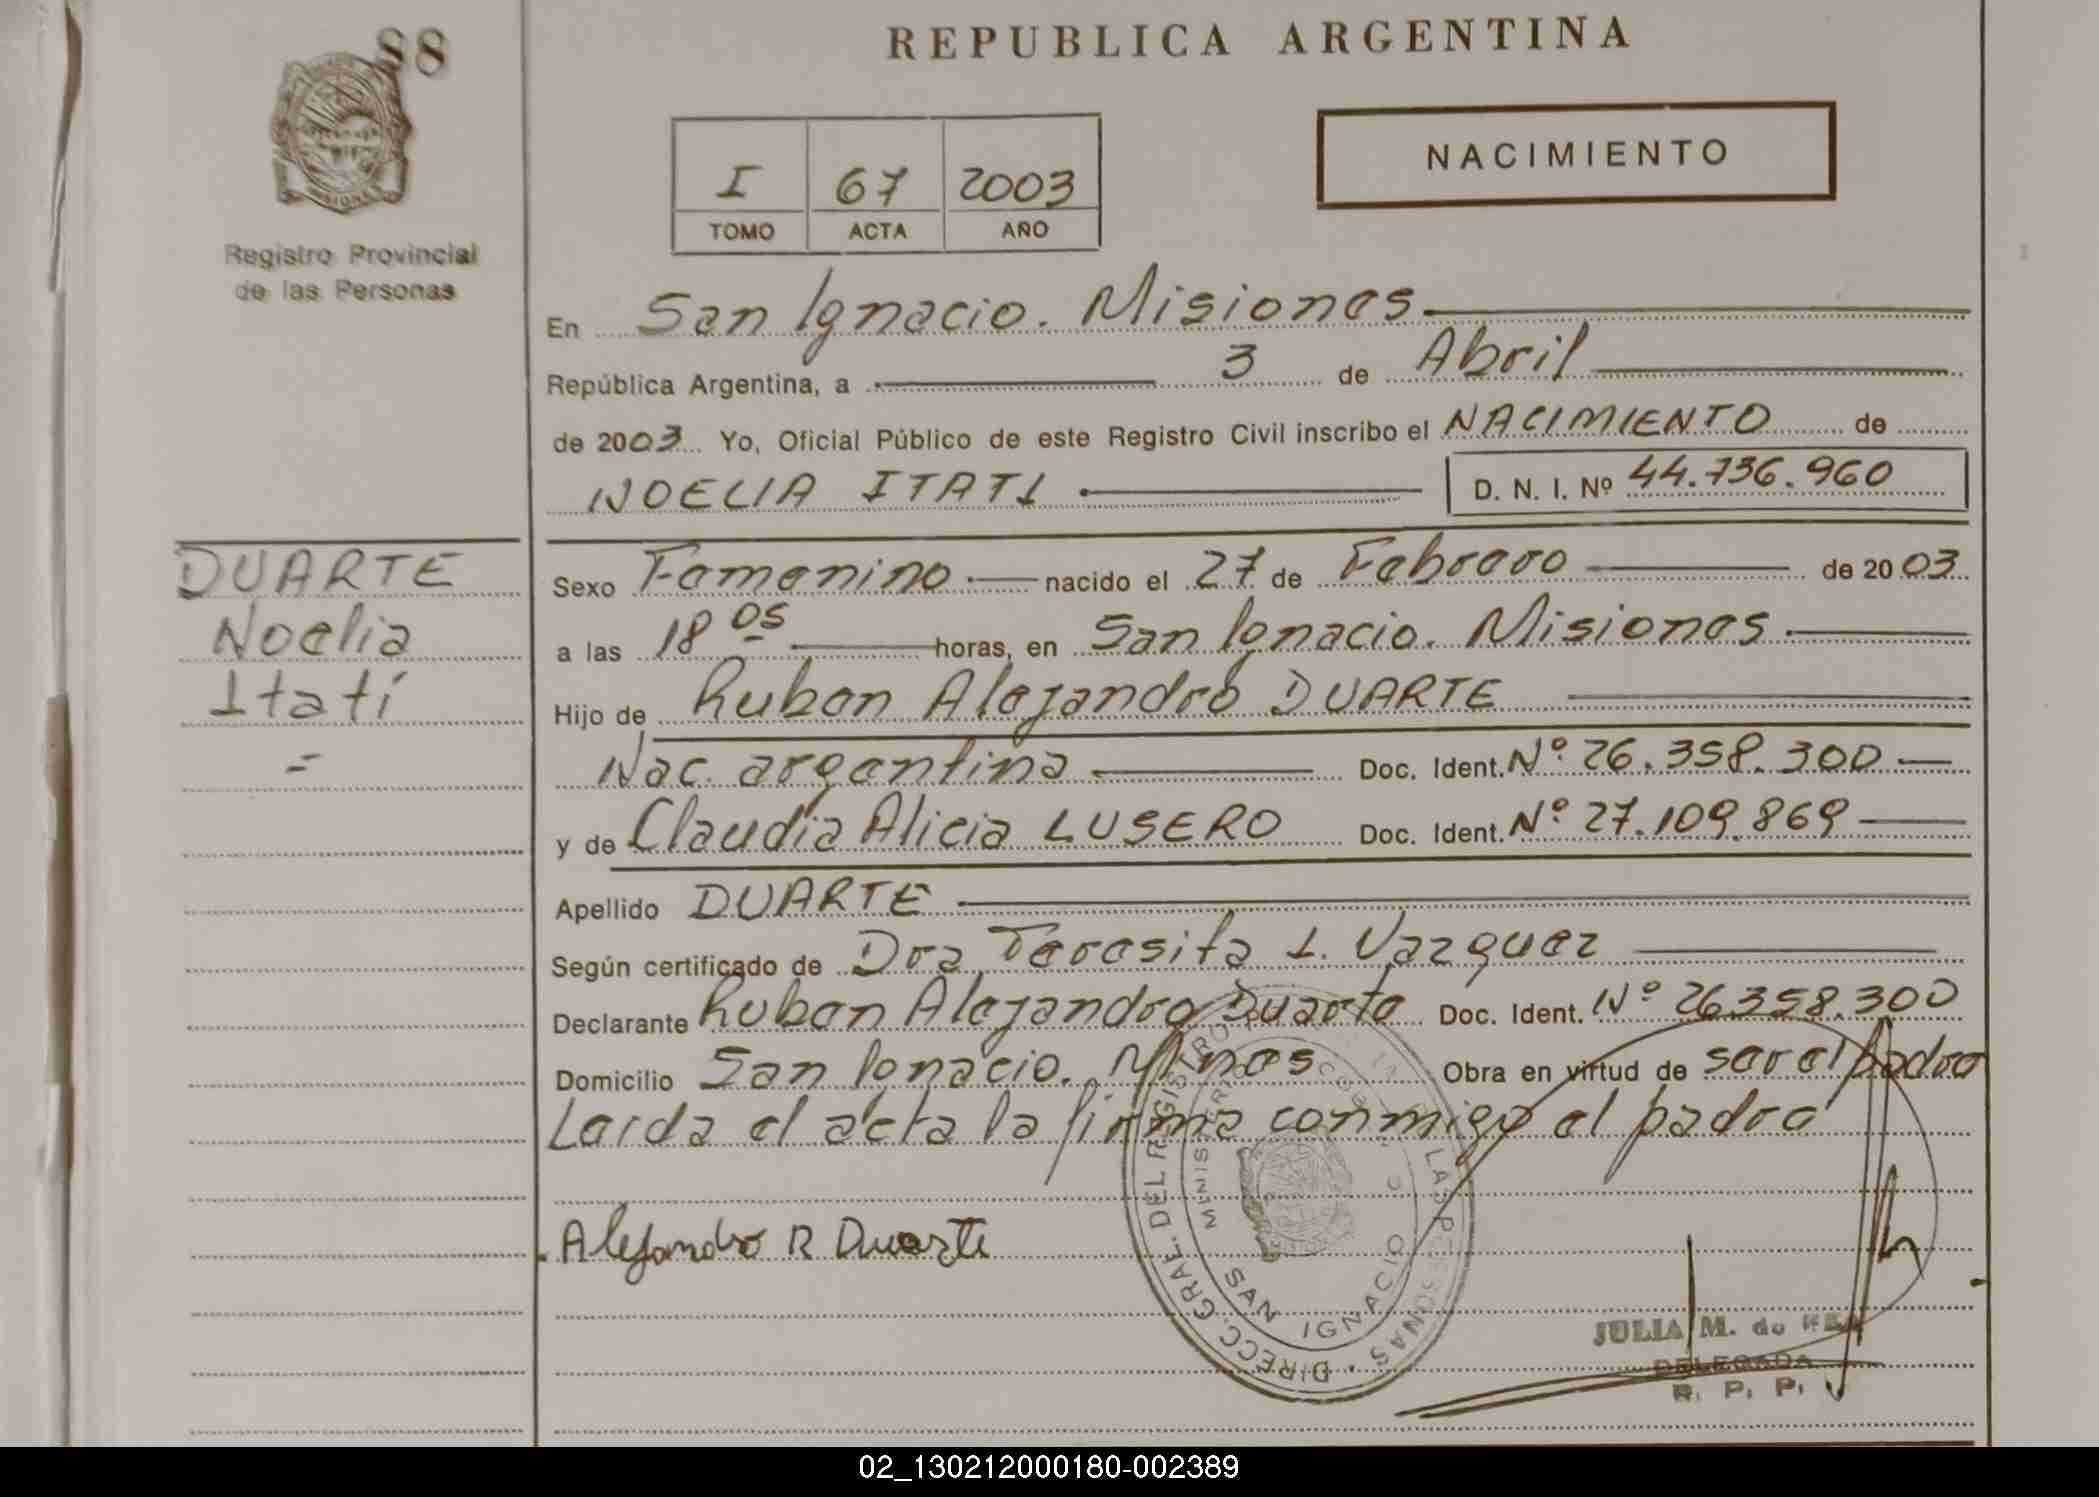 88
REPUBLICA ARGENTINA
I 67 2003
TOMO ACTA AÑO
NACIMIENTO
Registro Provincial
de las Personas
En San Ignacio. Misiones
República Argentina, a 3 de Abril
de 2003 Yo, Oficial Público de este Registro Civil inscribo el NACIMIENTO de
NOELIA ITATI D. N. I. Nº 44.736.960
DUARTE
Noelia
Itatí
=
Sexo Femenino nacido el 27 de Febrero de 2003
a las 18 05 horas, en San Ignacio. Misiones
Hijo de Ruben Alejandro DUARTE
Nac. argentina Doc. Ident. Nº 26.358.300
y de Claudia Alicia LUSERO Doc. Ident. Nº 27.109.869
Apellido DUARTE
Según certificado de Dra Teresita I. Vazquez
Declarante Ruben Alejandro Duarte Doc. Ident. Nº 26.358.300
Domicilio San Ignacio. Mnes Obra en virtud de ser el padre
Leida el acta la firma conmigo el padre
Alejandro R Duarte
DIRECC. GRAL. DEL REGISTRO LAS PERSONAS
SAN IGNACIO
JULIA M. de
DELEGADA
R. P. P.
02_130212000180-002389